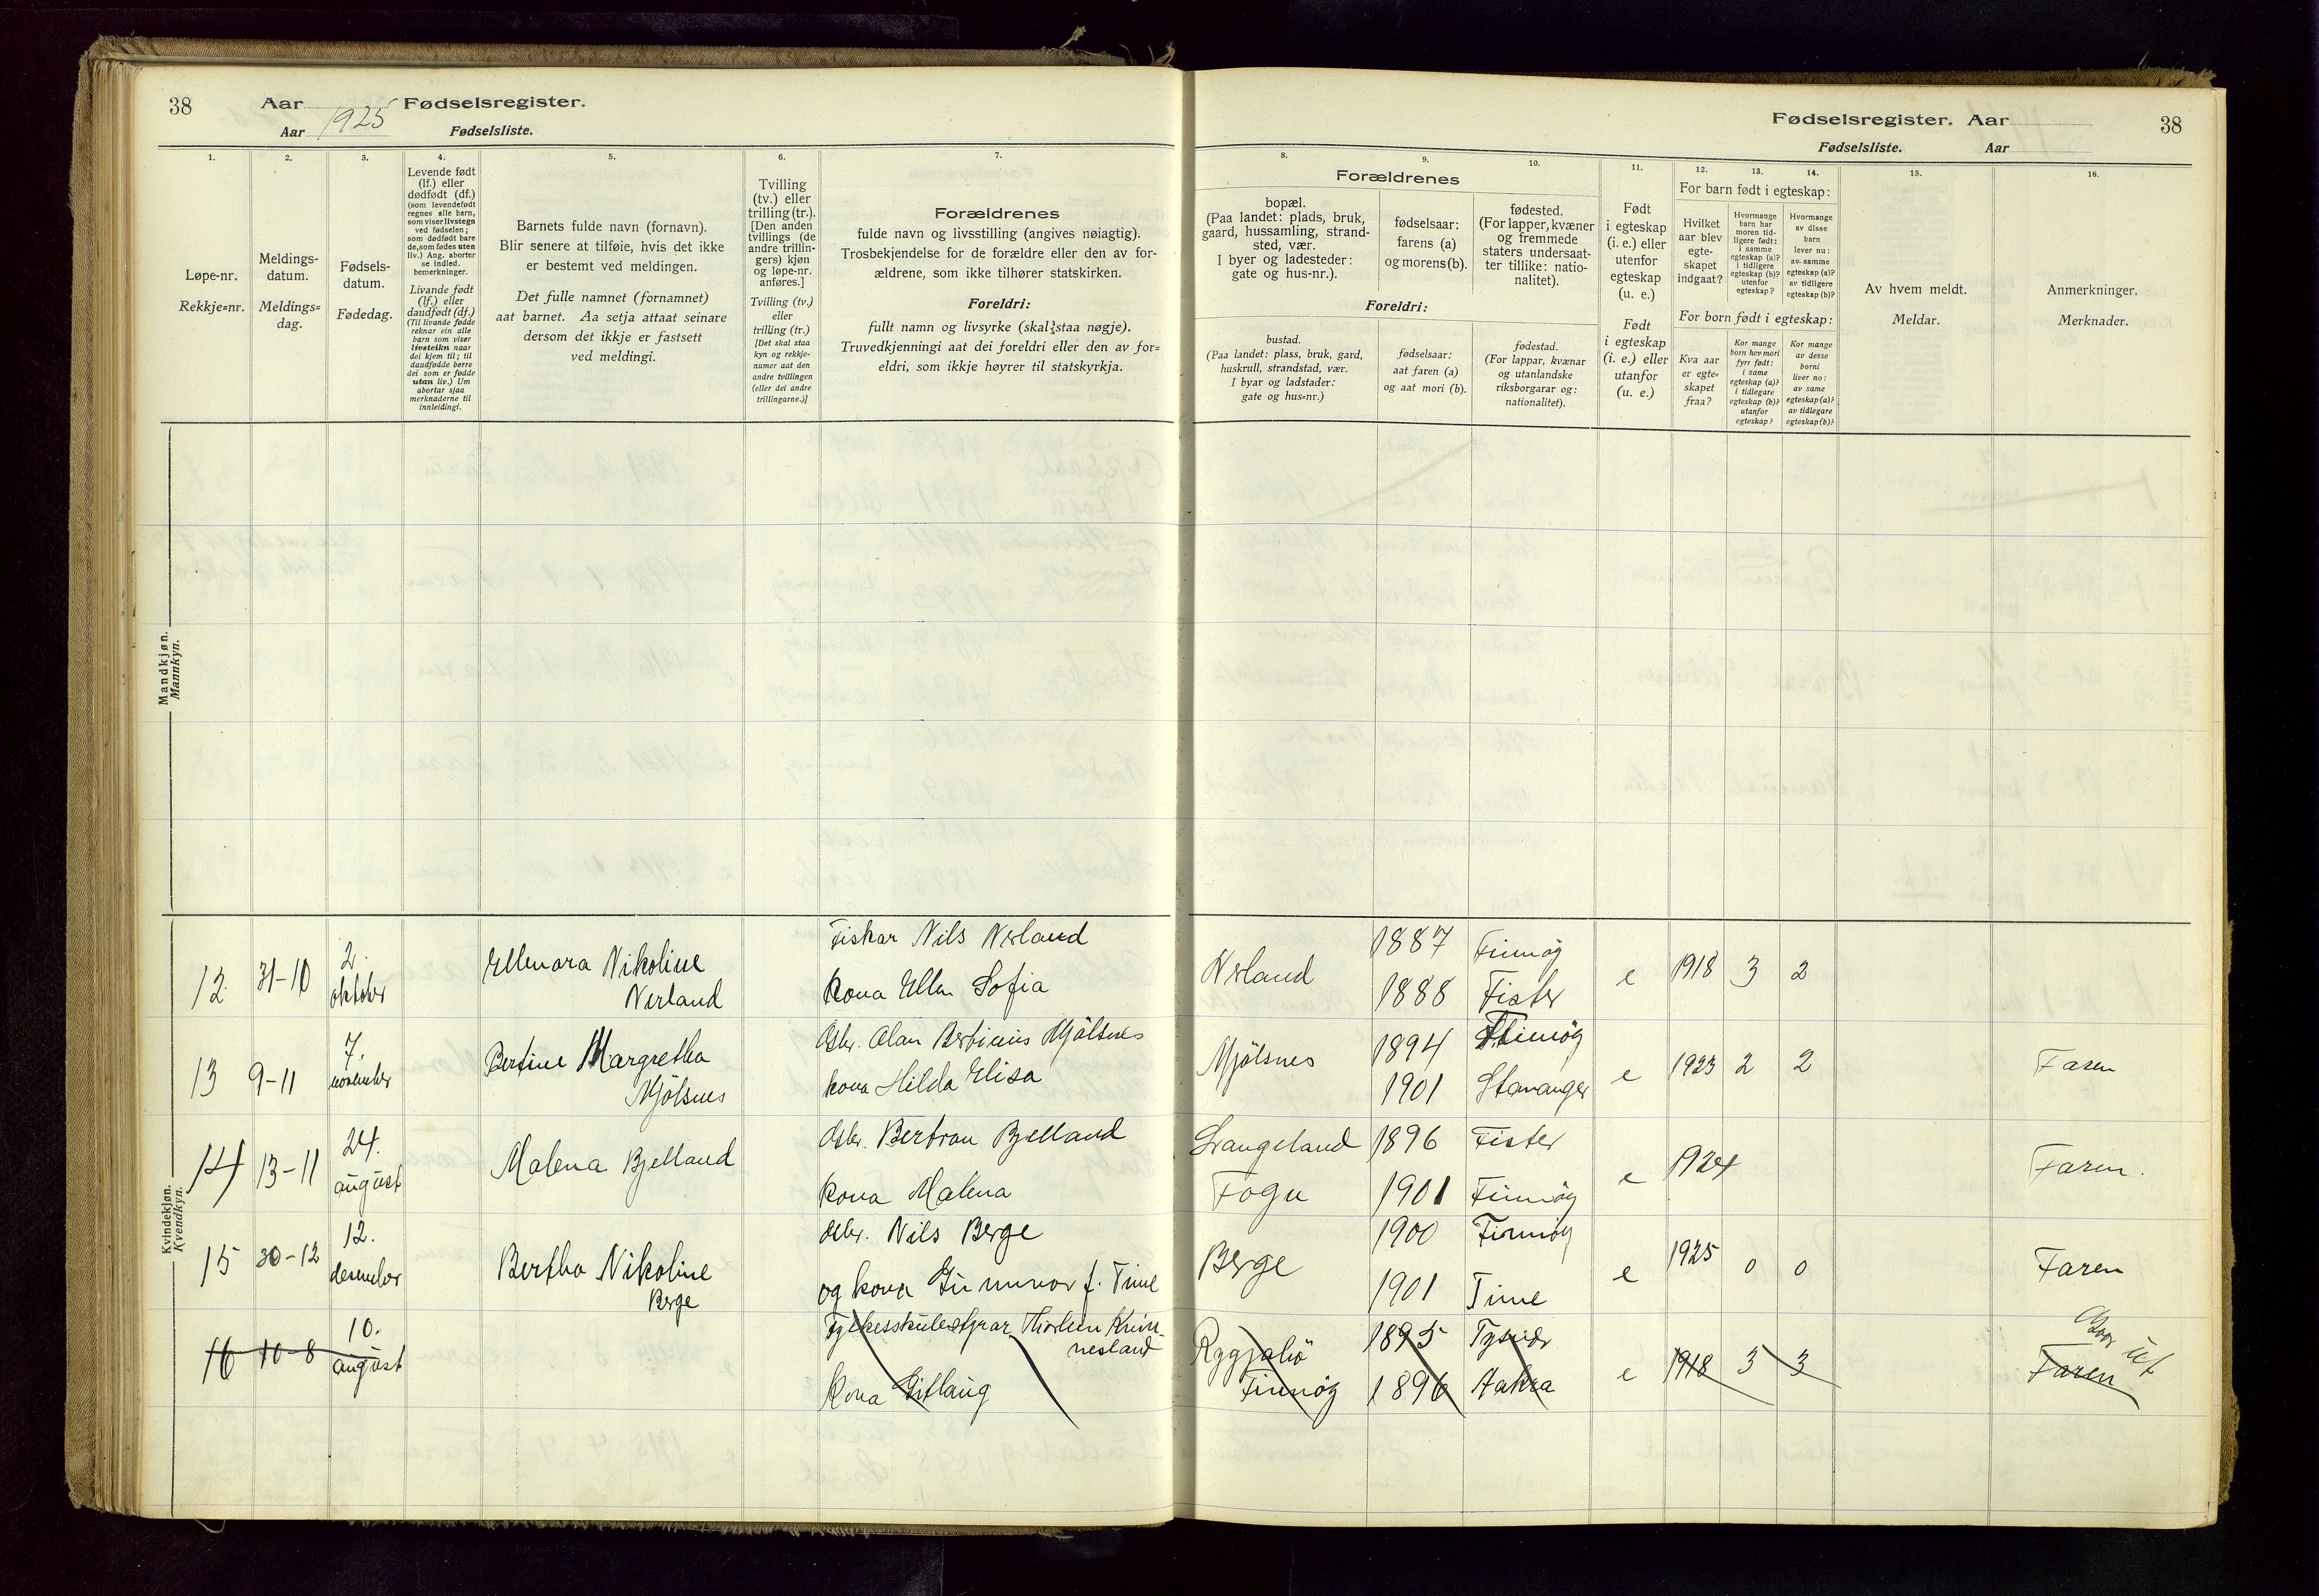 38
Aar 1925 Fødselsregister.
Aar Fødselsliste.
1.
2.
3.
4.
5.
6.
7.
Løpe-nr.
Rekkje=nr.
Meldings-
datum.
Meldings=
dag.
Fødsels-
datum.
Fødedag.
Levende født
(lf.) eller
dødfødt (df.)
(som levendefødt
regnes alle barn,
som viser livstegn
ved fødselen;
som dødfødt bare
de, som fødes uten
liv.) Ang. aborter
se indled.
bemerkninger.
Livande født
(lf.) eller
daudfødt (df.)
(Til livande fødde
reknar ein alle
barn som viser
livsteikn naar
dei kjem til; til
daudfødde berre
dei som er fødde
utan liv.) Um
abortar sjaa
merknaderne til
innleidingi.
Barnets fulde navn (fornavn).
Blir senere at tilføie, hvis det ikke
er bestemt ved meldingen.
Det fulle namnet (fornamnet)
aat barnet. Aa setja attaat seinare
dersom det ikkje er fastsett
ved meldingi.
Tvilling
(tv.) eller
trilling (tr.).
[Den anden
tvillings (de
andre trillin-
gers) kjøn
og løpe-nr.
anføres.]
Tvilling (tv.)
eller
trilling (tr.)
[Det skal staa
kyn og rekkje-
numer aat den
andre tvillingen
(eller dei andre
trillingarne.)]
Forældrenes
fulde navn og livsstilling (angives nøiagtig).
Trosbekjendelse for de forældre eller den av for-
ældrene, som ikke tilhører statskirken.
Foreldri:
fullt namn og livsyrke (skal staa nøgje).
Truvedkjenningi aat dei foreldri eller den av for=
eldri, som ikkje høyrer til statskyrkja.
Mandkjøn.
Mannkyn.
Kvindekjøn.
Kvendkyn.
Fødselsregister. Aar
38
Fødselsliste. Aar
8.
9.
10.
11.
12.
13.
14.
15.
16.
Forældrenes
bopæl.
(Paa landet: plads, bruk,
gaard, hussamling, strand-
sted, vær.
I byer og ladesteder:
gate og hus-nr.).
fødselsaar:
farens (a)
og morens (b).
fødested.
(For lapper, kvæner
og fremmede
staters undersaat-
ter tillike: natio-
nalitet).
Foreldri:
bustad.
(Paa landet: plass, bruk, gard,
huskrull, strandstad, vær.
I byar og ladstader:
gate og hus=nr.)
fødselsaar:
aat faren (a)
og aat mori (b).
fødestad.
(For lappar, kvænar
og utanlandske
riksborgarar og:
nationalitet).
Født
i egteskap
(i. e.) eller
utenfor
egteskap
(u. e.)
Født
i egteskap
(i. e.) eller
utanfor
(u. e.)
For barn født i egteskap:
Hvilket
aar blev
egte-
skapet
indgaat?
Hvormange
barn har
moren tid-
ligere født:
i samme
egteskap (a)?
i tidligere
egteskap (b)?
utenfor
egteskap?
Hvormange
av disse
barn
lever nu:
av samme
egteskap (a)?
av tidligere
egteskap (b)?
For born født i egteskap:
Kva aar
er egte=
skapet
fraa?
Kor mange
born hev mori
fyrr født:
i same
egteskap (a)?
i tidlegare
egteskap (b)?
utanfor
egteskap?
Kor mange
av desse
borni
liver no:
av same
egteskap (a)?
av tidlegare
egteskap (b)?
Av hvem meldt.
Meldar.
Anmerkninger.
Merknader.
12 31-10 2. oktober Ellenora Nikoline Nerland
Fiskar Nils Nerland
kona Ellen Sofia
Nerland 1887 Finnøy e 1918 3 2
1888 Fister
13 9-11 7. november Bertine Margretha Mjölsnes
Gbr. Olav Bertinius Mjölsnes
kona Hilda Elisa
Mjölsnes 1894 Finnöy e 1923 2 2 Faren
1901 Stavanger
14 13-11 24. august Malena Bjelland
Gbr. Bertran Bjelland
kona Malena
Langeland 1896 Fister e 1924 Faren.
Fogn 1901 Finnöy
15 30-12 12. desember Bertha Nikoline Berge
Gbr. Nils Berge
og kona Gunnvor f. Time
Berge 1900 Finnöy e 1925 0 0 Faren
1901 Time
16 10-8 10. august
Fylkesskulestyrar
kona
Finnöy 1895 Tysvær e 1918 3 3 Faren
1896 Aakra
ut